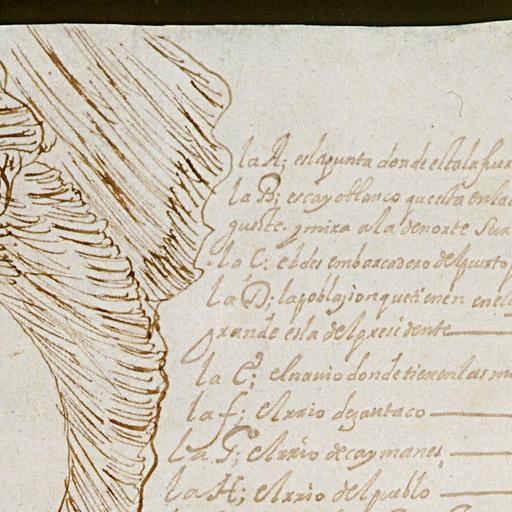 la A; es la punta donde esta la fuer
la B; es cayo blanco que esta en la
y mira a la de norte Sur
la C: el des embarcadero del puerto
la D: la poblasion que tienen en el
grande es la del presidente
la E; el navio donde tienen las m
la f; el rrio de guataco
la G; el rrio de caymanes
la H; el rrio del pueblo